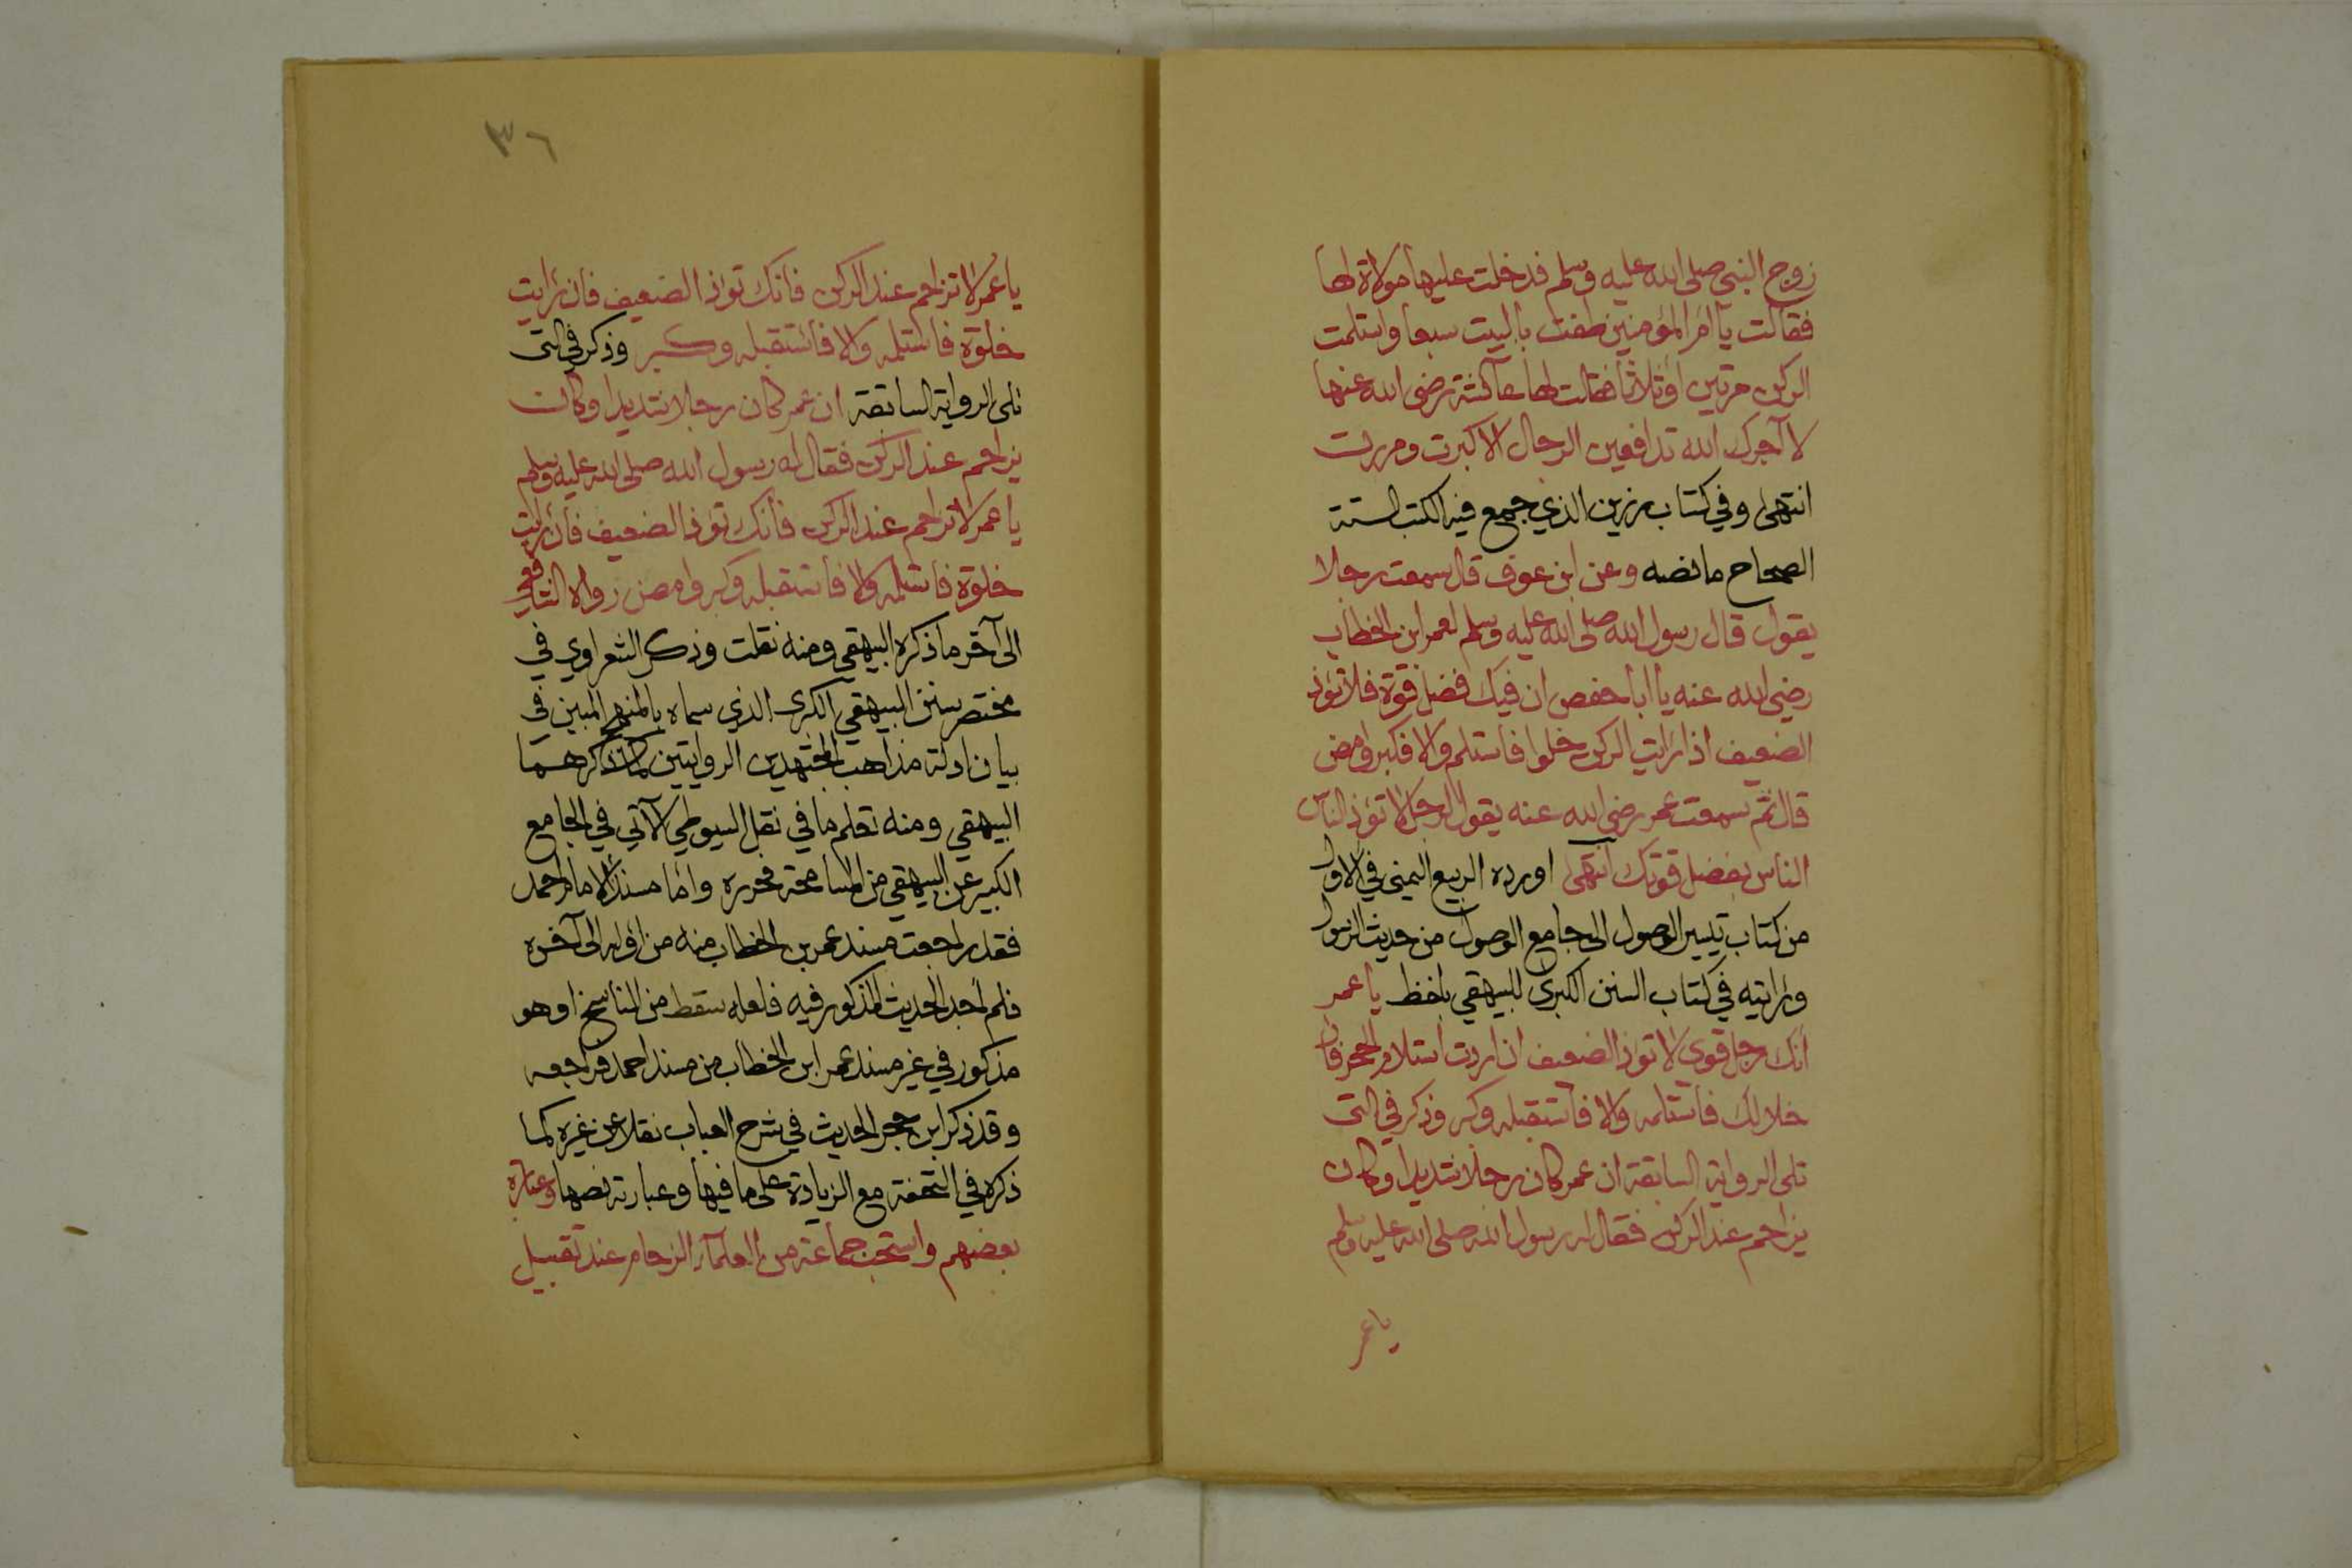 زوج النبي صلى الله عليه وسلم فدخلت عليها مولاة لها
فقالت يا ام المؤمنين طفت بالبيت سبعا واستلمت
الركن مرتين او ثلاثا فقالت لها عآئشة رضى الله عنها
لا آجرك الله تدافعين الرجال الا كبرت ومررت
انتهى وفي كتاب رزين الذي جمع فيه الكتب الستة
الصحاح ما نصه وعن ابن عوف قال سمعت رجلا
يقول قال رسول الله صلى الله عليه وسلم لعمر ابن الخطاب
رضي الله عنه يا ابا حفص ان فيك فضل قوة فلا تؤذ
الضعيف اذا رايت الركن خلوا فاستلم والا فكبر وامض
قال ثم سمعت عمر رضى الله عنه يقول لرجل لا تؤذ الناس
الناس بفضل قوتك انتهى اورده الربيع اليمني في الاول
من كتاب تيسير الوصول الى جامع الوصول من حديث الرسول
ورايته في كتاب السنن الكبرى للبيهقي بلفظ يا عمر
أنك رجل قوى لا توذ الضعيف ان اردت استلام الحجر فان
خلا لك فاستلمه والا فاستقبله وكبر وذكر في التى
تلى الرواية السابقة ان عمر كان رجلا شديدا وكان
يزاحم عند الركن فقال له رسول الله صلى الله عليه وسلم
يا عمر
٣٦
يا عمر لا تزاحم عند الركن فانك توذ الضعيف فان رايت
خلوة فاستلمه والا فاستقبله وكبر وذكر في التى
تلى الرواية السابقة ان عمر كان رجلا شديدا وكان
يزاحم عند الركن فقال له رسول الله صلى الله عليه وسلم
يا عمر لا تزاحم عند الركن فانك توذ الضعيف فان رايت
خلوة فاستلمه والا فاستقبله وكبر وامض رواه الشافعي
الى آخر ما ذكره البيهقي ومنه نقلت وذكر الشعراوي في
مختصر سنن البيهقي الكبرى الذي سماه بالمنهج المبين في
بيان ادلة مذاهب المجتهدين الروايتين كما ذكرهما
البيهقي ومنه تعلم ما في نقل السيوطي الآتي في الجامع
الكبير عن البيهقي من المسامحة فحرره واما مسند الامام احمد
فقد راجعت مسند عمر بن الخطاب منه من اوله الى آخره
فلم اجد الحديث المذكور فيه فلعله سقط من الناسخ او هو
مذكور في غير مسند عمر ابن الخطاب من مسند احمد فراجعه
وقد ذكر ابن حجر الحديث في شرح العباب نقلا عن غيره كما
ذكره في التحفة مع الزيادة على ما فيها وعبارته نصها وعبارة
بعضهم واستحب جماعة من العلمآء الزحام عند تقبيل